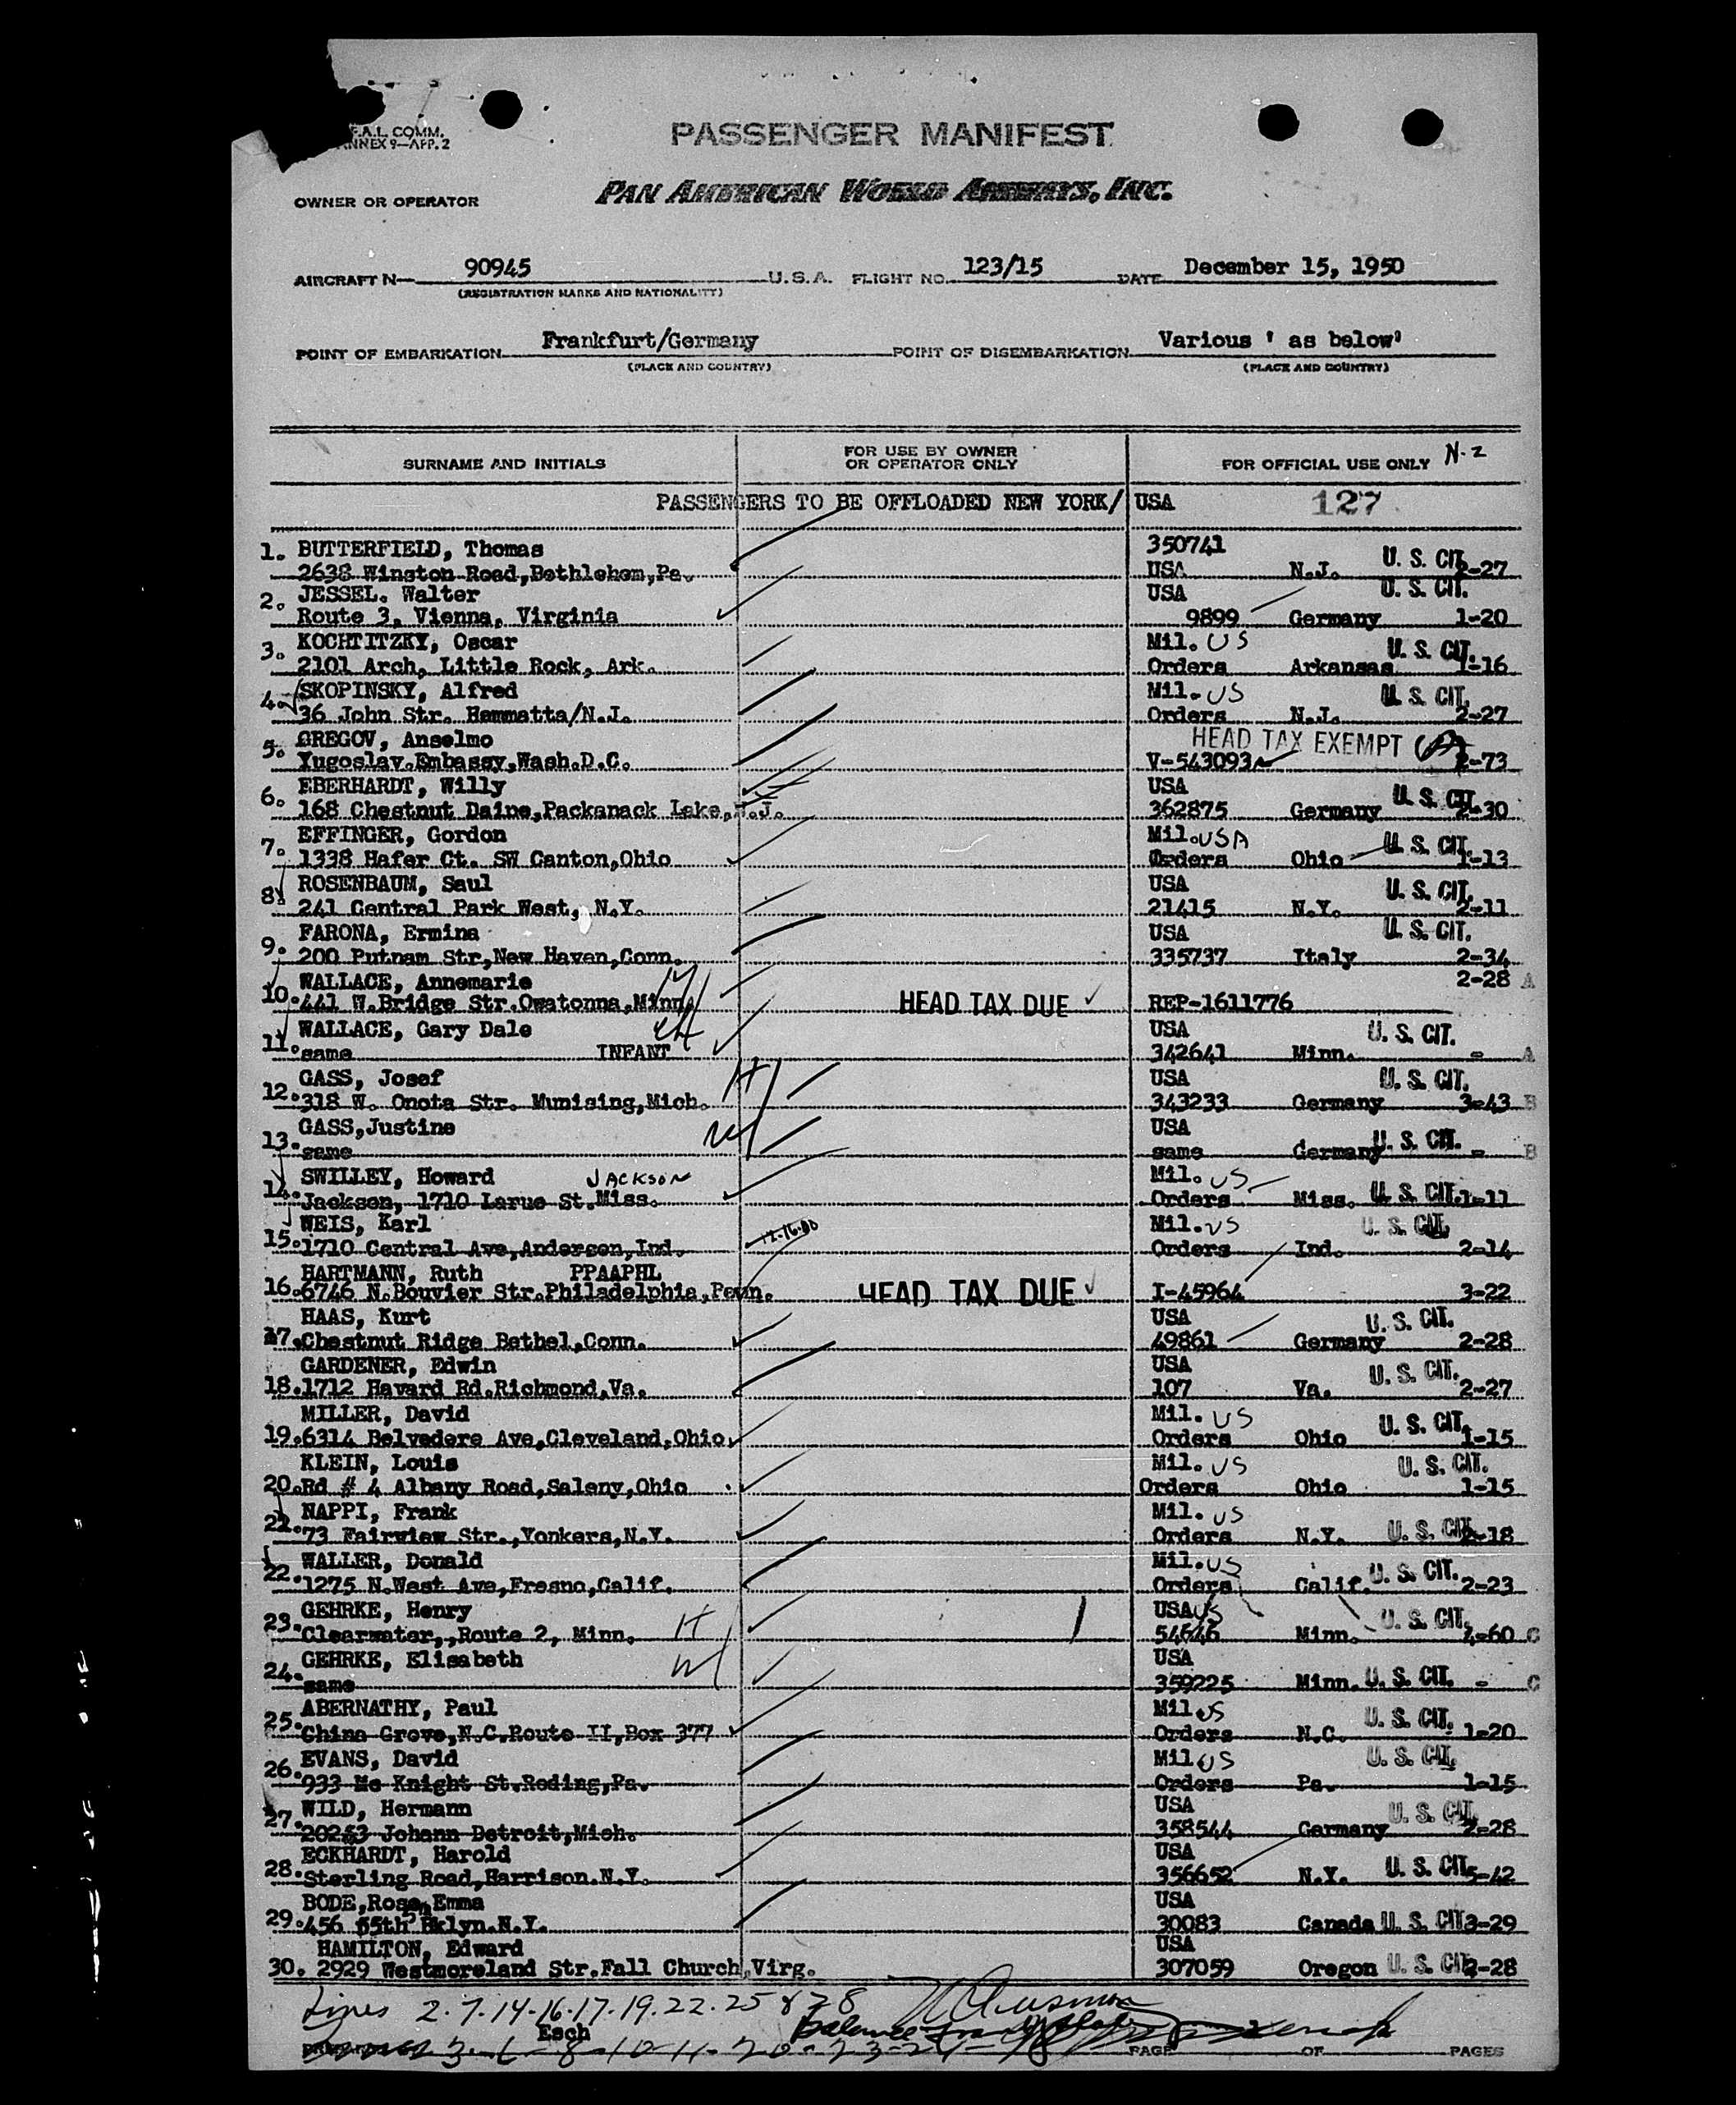 F.A.L. COMM.
ANNEX 9—APP. 2
PASSENGER MANIFEST
OWNER OR OPERATOR
PAN AMERICAN WORLD AIRWAYS, INC.
AIRCRAFT N— 90945 U.S.A. FLIGHT NO. 123/15 DATE December 15, 1950
(REGISTRATION MARKS AND NATIONALITY)
POINT OF EMBARKATION Frankfurt/Germany POINT OF DISEMBARKATION Various ' as below'
(PLACE AND COUNTRY) (PLACE AND COUNTRY)
SURNAME AND INITIALS FOR USE BY OWNER OR OPERATOR ONLY FOR OFFICIAL USE ONLY N-2
PASSENGERS TO BE OFFLOADED NEW YORK/ USA 127
1. BUTTERFIELD, Thomas 350741
2638 Winston Road,Bethlehem,Pa. USA N.J. U. S. CIT. 2-27
2. JESSEL. Walter USA U. S. CIT.
Route 3, Vienna, Virginia 9899 Germany 1-20
3. KOCHTITZKY, Oscar Mil. US U. S. CIT.
2101 Arch, Little Rock, Ark. Orders Arkansas 1-16
4. SKOPINSKY, Alfred Mil. US U. S. CIT.
36 John Str. Hammatta/N.J. Orders N.J. 2-27
5. GREGOV, Anselmo HEAD TAX EXEMPT
Yugoslav.Embassy,Wash.D.C. V-543093 2-73
6. EBERHARDT, Willy USA U. S. CIT.
168 Chestnut Daine,Packanack Lake,N.J. 362875 Germany 2-30
7. EFFINGER, Gordon Mil. USA U. S. CIT.
1338 Hafer Ct. SW Canton,Ohio Orders Ohio 1-13
8. ROSENBAUM, Saul USA U. S. CIT.
241 Central Park West, N.Y. 21415 N.Y. 2-11
9. FARONA, Ermina USA U. S. CIT.
200 Putnam Str,New Haven,Conn. 335737 Italy 2-34
WALLACE, Annemarie 2-28 A
10. 441 W.Bridge Str.Owatonna,Minn. HEAD TAX DUE REP-1611776
WALLACE, Gary Dale USA U. S. CIT.
11. same INFANT 342641 Minn. - A
GASS, Josef H USA U. S. CIT.
12. 318 W. Onota Str. Munising,Mich. 343233 Germany 3-43 B
GASS,Justine W USA U. S. CIT.
13. same same Germany - B
SWILLEY, Howard JACKSON Mil. US
14. Jackson, 1710 Larue St.Miss. Orders Miss. U. S. CIT. 1-11
WEIS, Karl Mil. US U. S. CIT.
15. 1710 Central Ave,Anderson,Ind. Orders Ind. 2-14
HARTMANN, Ruth PPAAPHL
16. 6746 N.Bouvier Str.Philadelphia,Penn. HEAD TAX DUE I-45964 3-22
HAAS, Kurt USA U. S. CIT.
17. Chestnut Ridge Bethel,Conn. 49861 Germany 2-28
GARDENER, Edwin USA U. S. CIT.
18. 1712 Havard Rd.Richmond,Va. 107 Va. 2-27
MILLER, David Mil. US U. S. CIT.
19. 6314 Belvedere Ave,Cleveland,Ohio. Orders Ohio 1-15
KLEIN, Louis Mil. US U. S. CIT.
20. Rd # 4 Albany Road,Saleny,Ohio Orders Ohio 1-15
NAPPI, Frank Mil. US
21. 73 Fairview Str.,Yonkers,N.Y. Orders N.Y. U. S. CIT. 2-18
WALLER, Donald Mil. US
22. 1275 N.West Ave,Fresno,Calif. Orders Calif. U. S. CIT. 2-23
GEHRKE, Henry H USA US U. S. CIT.
23. Clearwater,,Route 2, Minn. 54646 Minn. 4-60 C
GEHRKE, Elisabeth W USA
24. same 359225 Minn. U. S. CIT. - C
ABERNATHY, Paul Mil US U. S. CIT.
25. China Grove,N.C.Route II,Box 377 Orders N.C. 1-20
EVANS, David Mil US U. S. CIT.
26. 933 Mc Knight St.Reding,Pa. Orders Pa. 1-15
WILD, Hermann USA U. S. CIT.
27. 20253 Johann Detroit,Mich. 358544 Germany 2-28
ECKHARDT, Harold USA
28. Sterling Road,Harrison.N.Y. 356652 N.Y. U. S. CIT. 5-42
BODE,Rose Emma USA
29. 456 55th Bklyn.N.Y. 30083 Canada U. S. CIT. 3-29
HAMILTON, Edward USA
30. 2929 Westmoreland Str.Fall Church,Virg. 307059 Oregon U. S. CIT. 2-28
Lines 2-7-14-16-17-19-22-25 & 28
Esch
PAGE OF PAGES